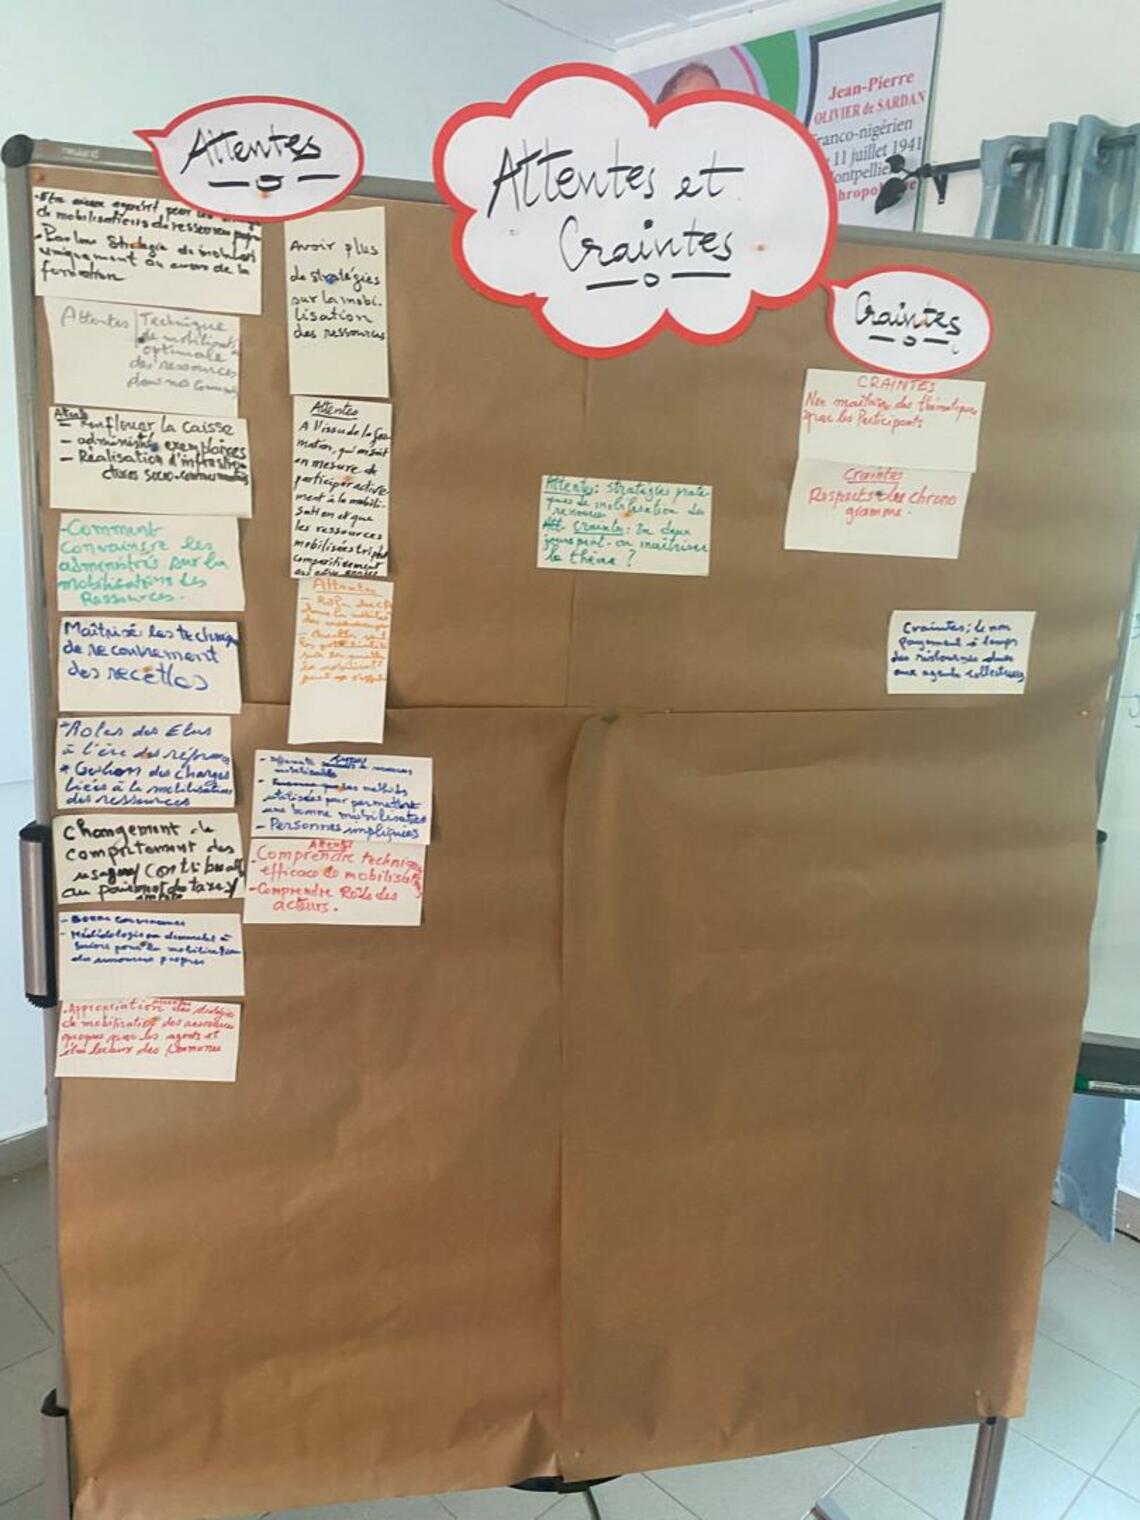 Attentes et
Craintes
Jean-Pierre
OLIVIER de SARDAN
Franco-nigérien
11 juillet 1941
Montpellier
Attentes
de mobilisations de ressources
uniquement au cours de la
formation
Attentes Technique
de mobilisation
optimale
des ressources
dans nos
Renflouer la caisse
- administrés exemplaires
- Réalisation d'infrastru
ctures socio-communautaires
- Comment
convaincre les
administrés sur la
mobilisations des
Ressources.
Maîtrisé les techniques
de recouvrement
des recettes
* Roles des Elus
à l'ère des réformes
* Gestion des charges
liées à la mobilisation
des ressources
Changement de
comportement des
usagers/contribuables
au paiement des taxes/
- Bonne
suivre pour la mobilisation
des ressources propres
- Appropriation des stratégies
de mobilisation des ressources
propres par les agents et
élus locaux des Communes
Avoir plus
de stratégies
sur la mobi-
lisation
des ressources
Attentes
A l'issue de la for
mation, qu'on soit
en mesure de
participer active
ment à la mobili-
sation et que
les ressources
mobilisées
Attentes
- Quelles sont
les potentialités
sur lesquelles
la mobilisation
peut
mobilisables
les méthodes
utilisées pour permettre
une bonne mobilisation
- Personnes impliquées
Attentes
- Comprendre techniques
efficace de mobilisation
- Comprendre Rôle des
acteurs.
Attentes: stratégies prati-
ques de mobilisation des
ressources
Att craintes: En deux
jours peut-on maîtriser
le thème ?
Craintes
CRAINTES
Non maîtrise des thématiques
par les Participants
Craintes
Respects des chrono
gramme.
Craintes; le non
payement à temps
des ristournes dues
aux agents collecteurs